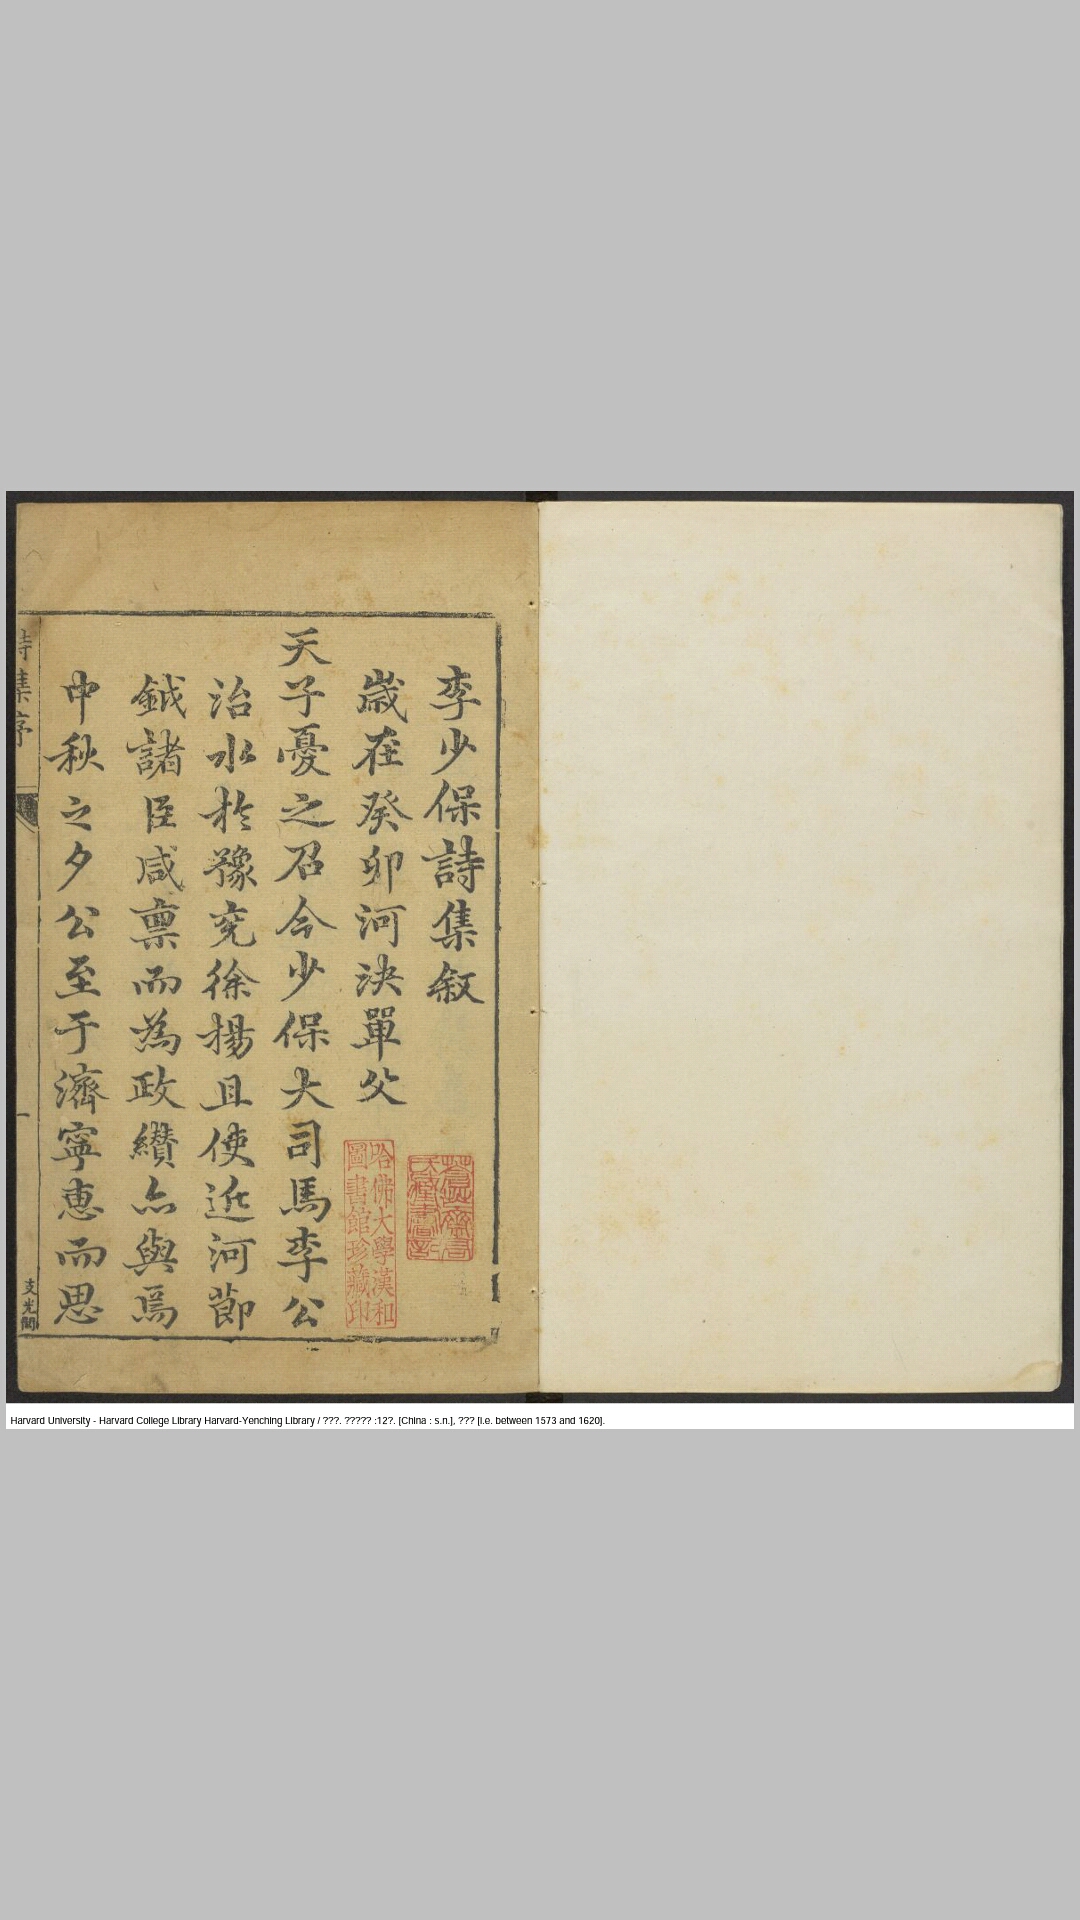 李少保詩集叙
歲在癸卯河決單父
天子憂之召今少保大司馬李公
治水於豫兖徐揚且使近河節
鉞諸臣咸稟而為政纘亦與焉
中秋之夕公至于濟寧惠而思
詩集序
一
哈佛大學漢和
圖書館珍藏印
Harvard University - Harvard College Library Harvard-Yenching Library / ???. ????? :12?. [China : s.n.], ??? [i.e. between 1573 and 1620].